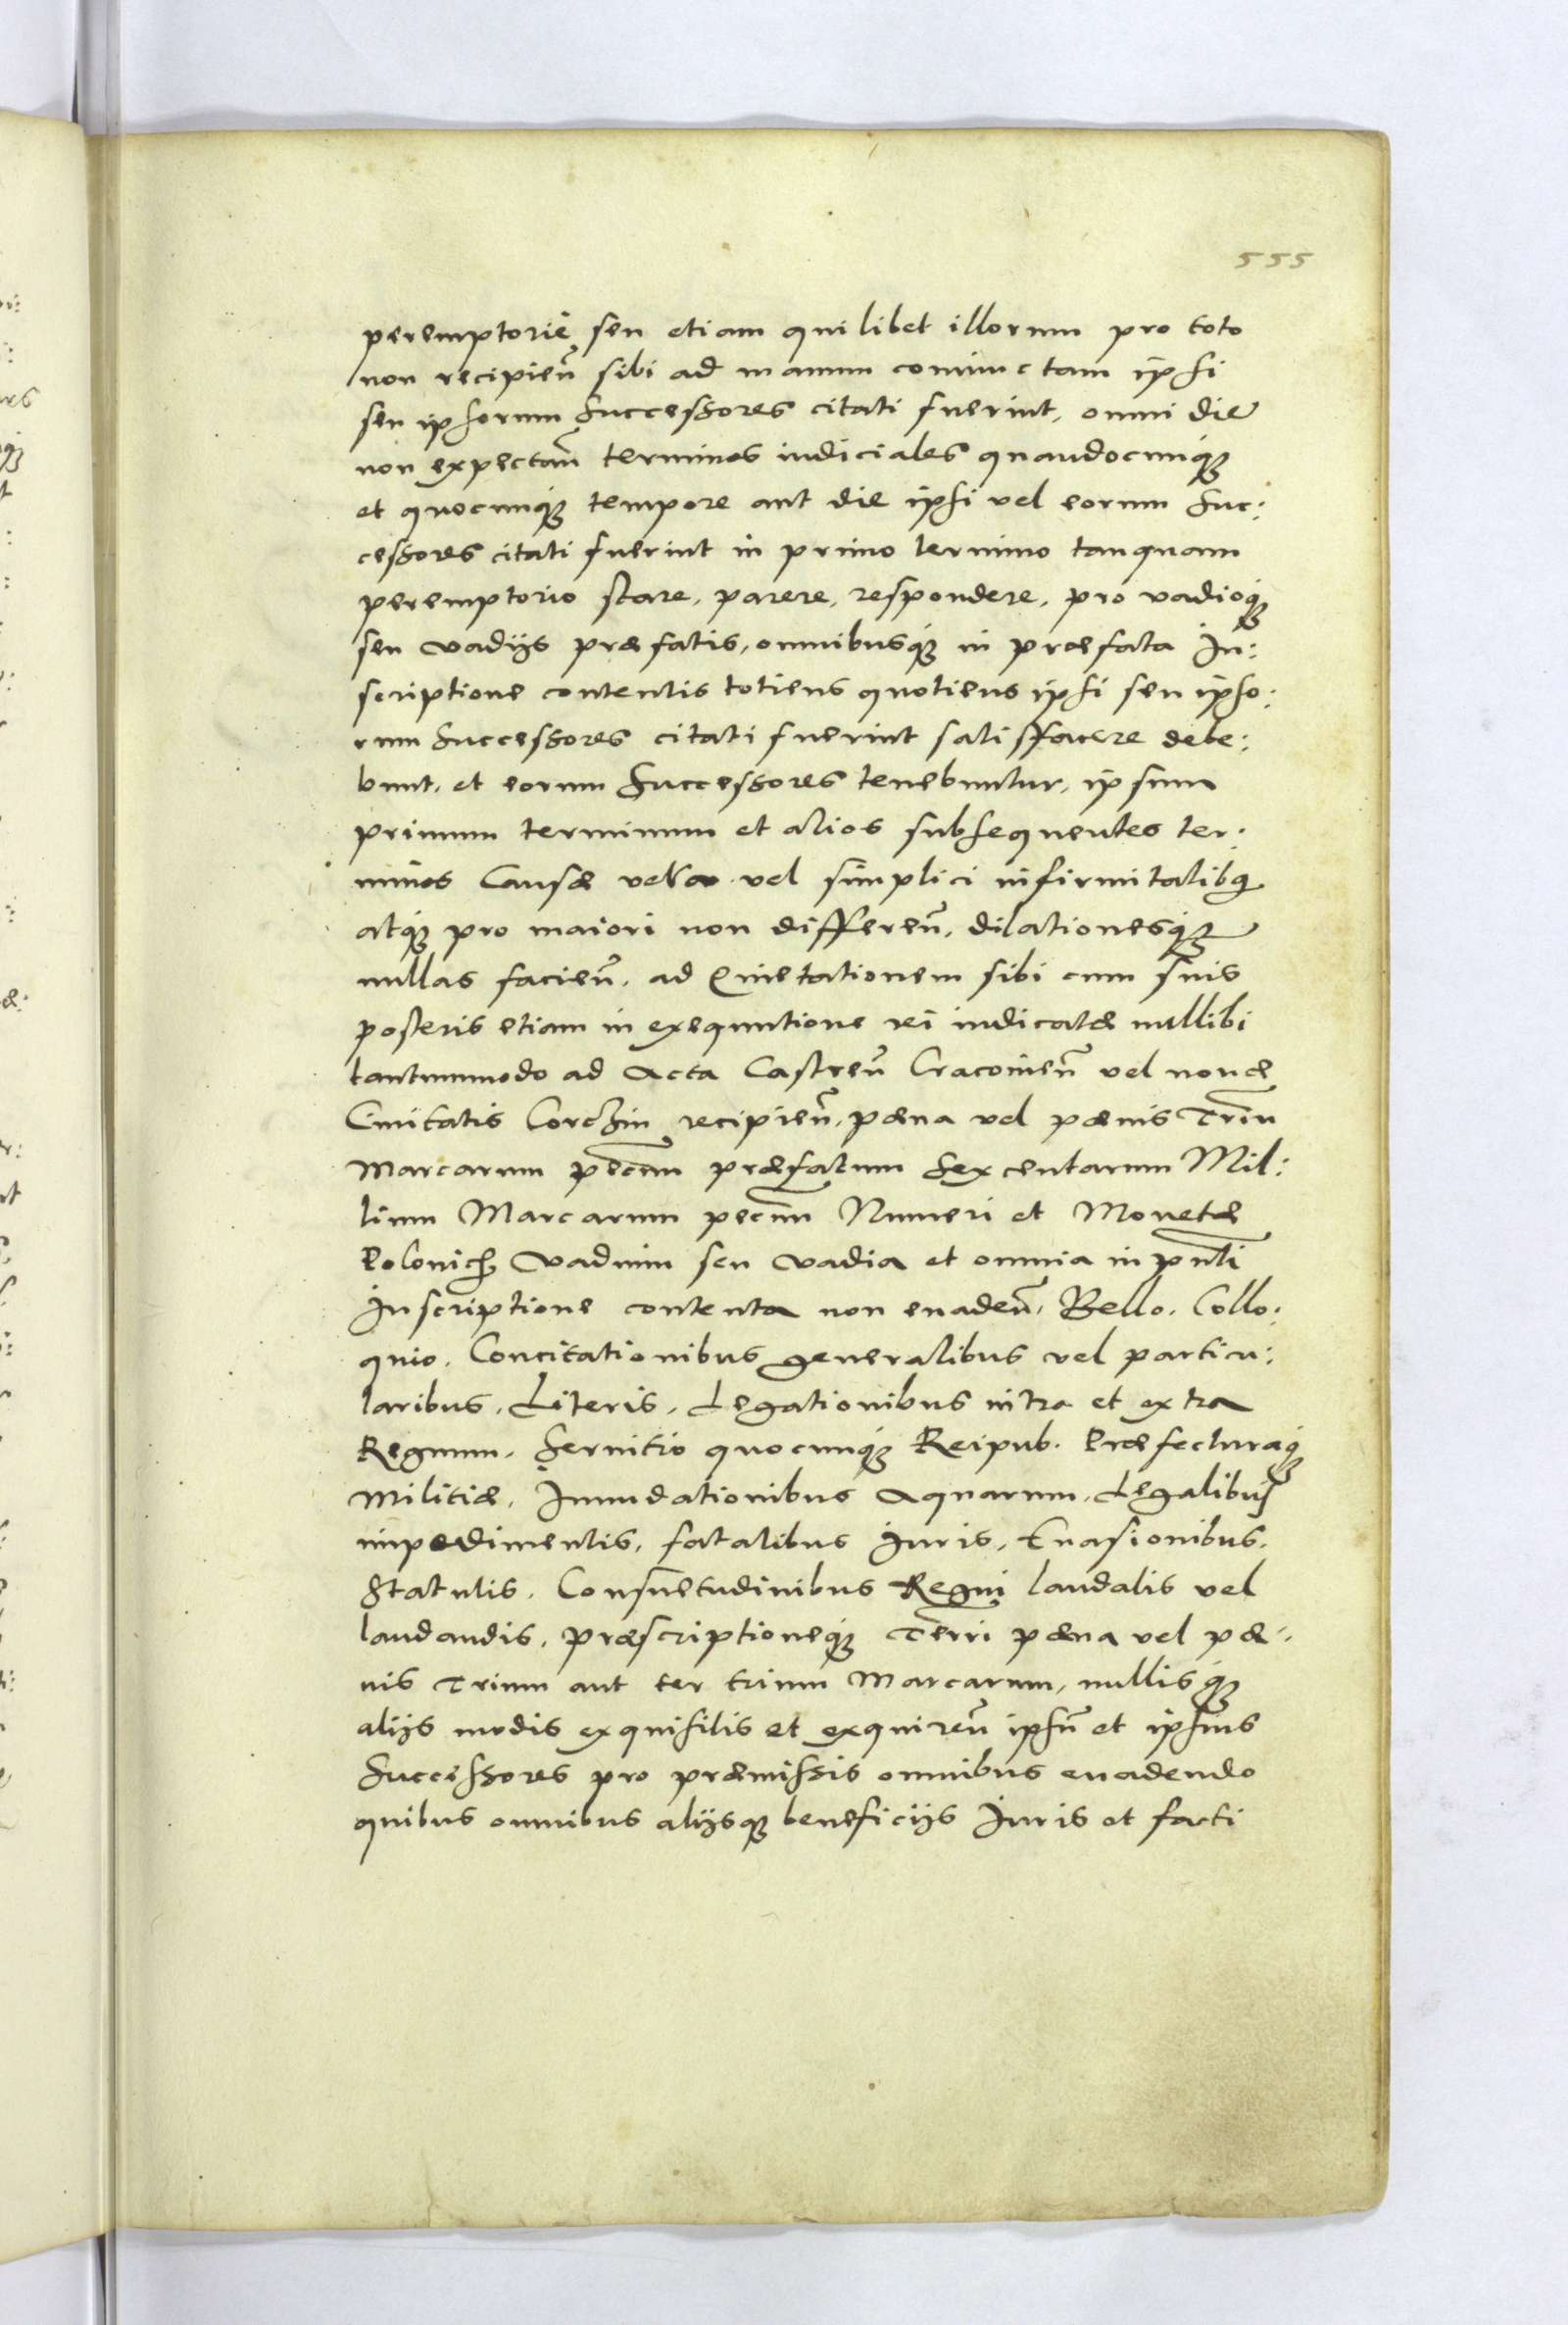 555
peremptorie seu etiam quilibet illorum pro toto
non recipien̄ sibi ad manum coniunctam ipsi
seu ipsorum Successores citati fuerint, omni die
non expectan̄ terminos iudiciales quandocunq́ꝫ
et quocunq́ꝫ tempore aut die ipsi vel eorum Suc:
cessores citati fuerint in primo termino tanquam
peremptorio stare, parere, respondere, pro vadioq́ꝫ
seu vadijs præfatis, omnibusq́ꝫ in præfata In:
scriptione contentis totiens quotiens ipsi seu ipso:
rum Successores citati fuerint satisfacere debe:
bunt, et eorum Successores tenebuntur, ipsum
primum terminum et alios subsequentes ter:
minos Causæ vera vel simplici infirmitatibꝫ
atq́ꝫ pro maiori non differen̄, dilationesq́ꝫ
nullas facien̄, ad Quietationem sibi cum suis
posteris etiam in exequutione rei iudicatæ nullibi
tantummodo ad Acta Castren̄ Cracouien̄ vel nouæ
Ciuitatis Corczin recipien̄, pæna vel pænis Triū
Marcarum pecun̄ præfatum Sexcentarum Mil:
lium Marcarum pecun̄ Numeri et Monetæ
Polonicꝫ Vadium seu Vadia et omnia in pn̄ti
Inscriptione contenta non euaden̄, Bello, Collo:
quio, Concitationibus generalibus vel particu:
laribus, Literis, Legationibus intra et extra
Regnum, Seruitio quocunq́ꝫ Reipub. Præfecturaq́ꝫ
Militiæ, Inundationibus Aquarum, Legalibus
impedimentis, fatalibus Iuris, Euasionibus,
Statutis, Consuetudinibus Regni laudatis vel
laudandis, præscriptioneq́ꝫ Terri pæna vel pæ:
nis Trium aut ter trium Marcarum, nullisq́ꝫ
alijs modis exquisitis et exquiren̄ ipsū et ipsius
Successores pro præmissis omnibus euadendo
quibus omnibus alijsqꝫ beneficijs Iuris et facti